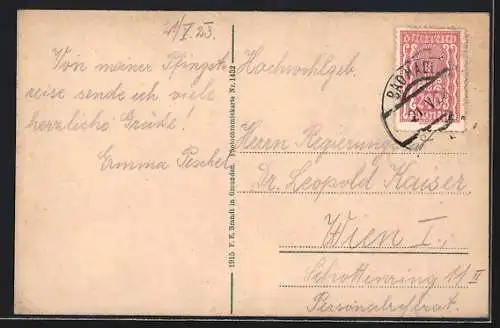 21/V. 23.
Von meiner Pfingst-
reise sende ich viele
herzliche Grüße!
Emma Peschel
1915 F. E. Brandt in Gmunden. Photochromiekarte Nr. 1452
Hochwohlgeb.
Herrn Regierung
Dr. Leopold Kaiser
Wien I.,
Schottenring 11 II
Personalreferat.
ÖSTERREICH
BAD HALL